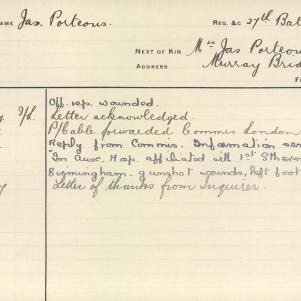 NAME Jas. Porteous. REG. &C 27th Bat
NEXT OF KIN Mrs Jas Porteou
ADDRESS Murray Brid
F
Off. rep. wounded.
Letter acknowledged.
P/Cable forwarded Commis London
Reply from Commis. Information
"In Auxc. Hosp. affiliated with 1st Sthern
Birmingham. gunshot wounds, left foot
Letter of thanks from Inquirer.